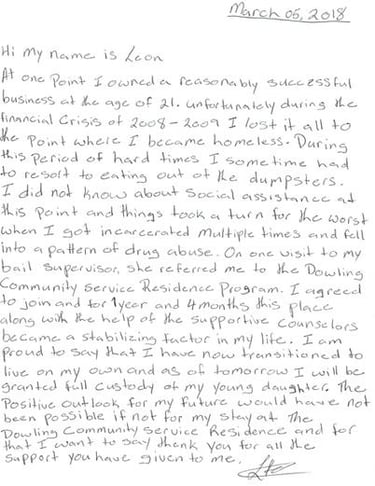 March 05, 2018
Hi my name is Leon
At one point I owned a reasonably successful
business at the age of 21. unfortunately during the
financial Crisis of 2008-2009 I lost it all to
the point where I became homeless. During
this period of hard times I sometime had
to resort to eating out of the dumpsters.
I did not know about Social assistance at
this point and things took a turn for the worst
when I got incarcerated multiple times and fell
into a pattern of drug abuse. On one visit to my
bail supervisor, she referred me to the Dowling
Community Service Residence Program. I agreed
to join and for 1 year and 4 months this place
along with the help of the supportive Counselors
became a stabilizing factor in my life. I am
proud to say that I have now transitioned to
live on my own and as of tomorrow I will be
granted full custody of my young daughter. The
Positive outlook for my future would have not
been possible if not for my stay at The
Dowling Community Service Residence and for
that I want to say thank you for all the
support you have given to me.